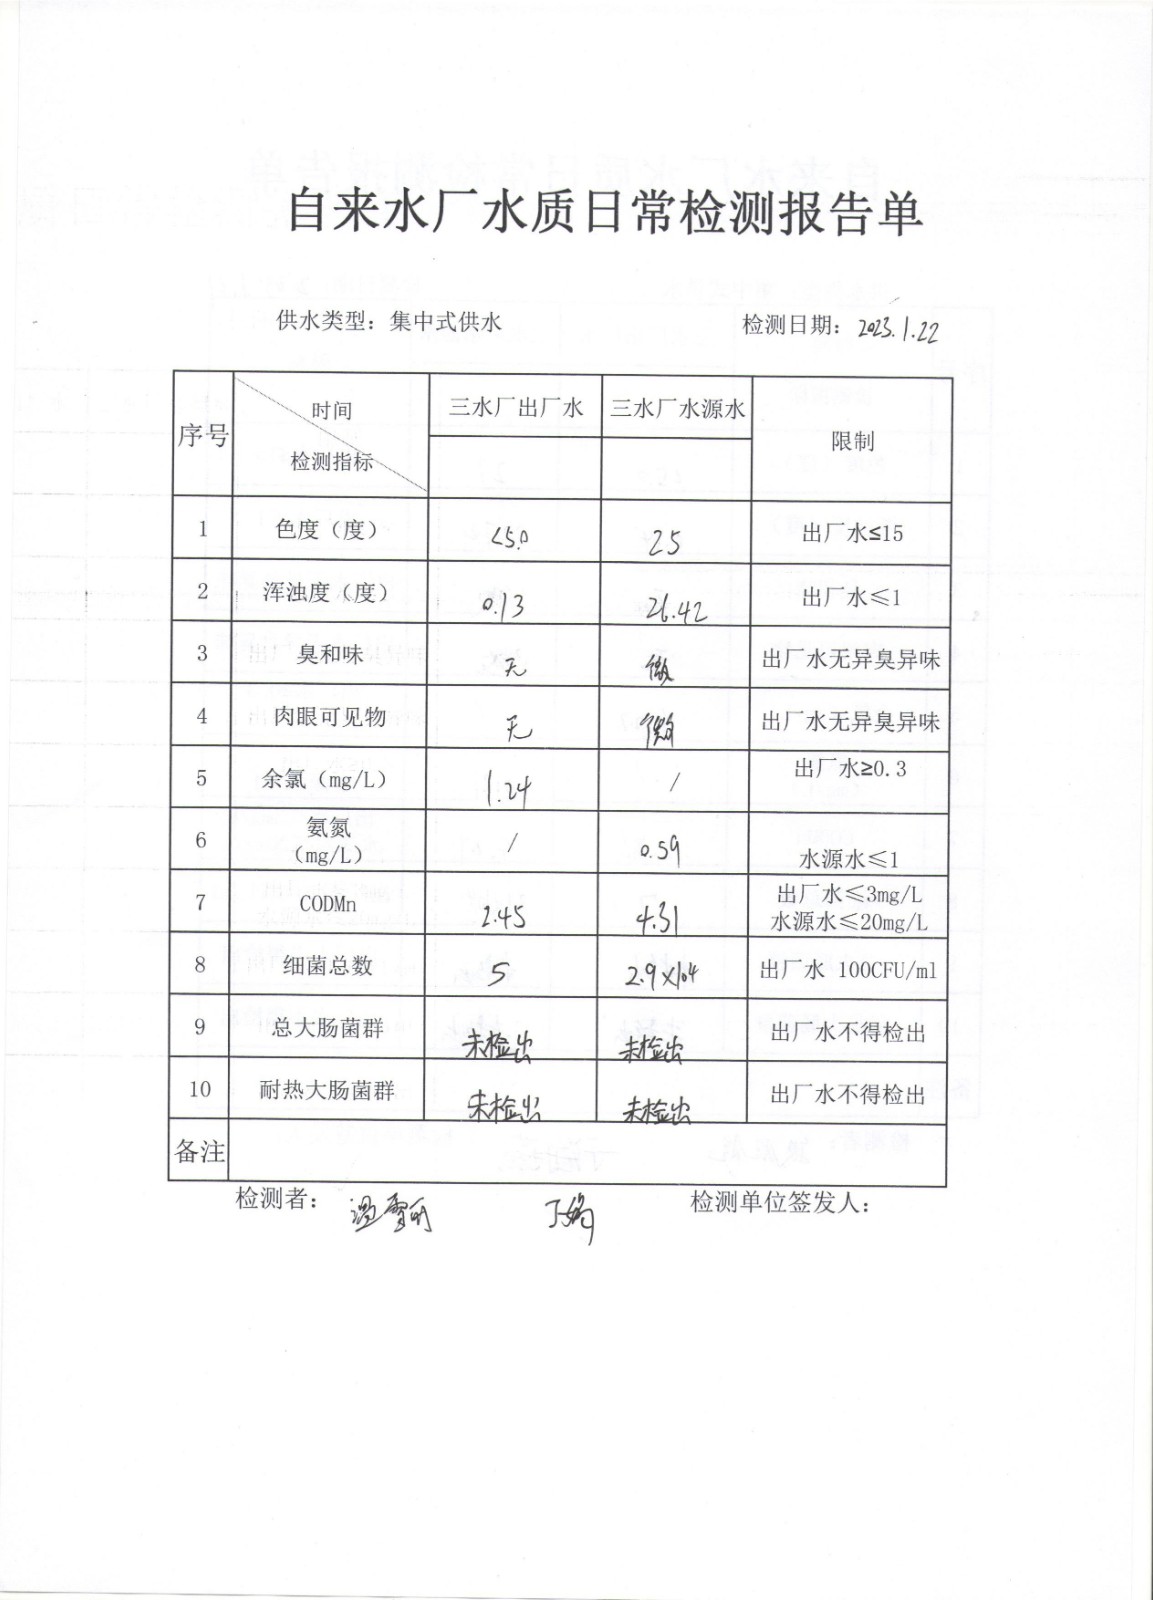 自来水厂水质日常检测报告单
供水类型：集中式供水 检测日期：2023.1.22
序号 时间 检测指标 三水厂出厂水 三水厂水源水 限制
1 色度（度） <5.0 25 出厂水≤15
2 浑浊度（度） 0.13 26.42 出厂水≤1
3 臭和味 无 微 出厂水无异臭异味
4 肉眼可见物 无 微 出厂水无异臭异味
5 余氯（mg/L） 1.24 / 出厂水≥0.3
6 氨氮 （mg/L） / 0.59 水源水≤1
7 CODMn 2.45 4.31 出厂水≤3mg/L 水源水≤20mg/L
8 细菌总数 5 2.9×104 出厂水 100CFU/ml
9 总大肠菌群 未检出 未检出 出厂水不得检出
10 耐热大肠菌群 未检出 未检出 出厂水不得检出
备注
检测者： 检测单位签发人：